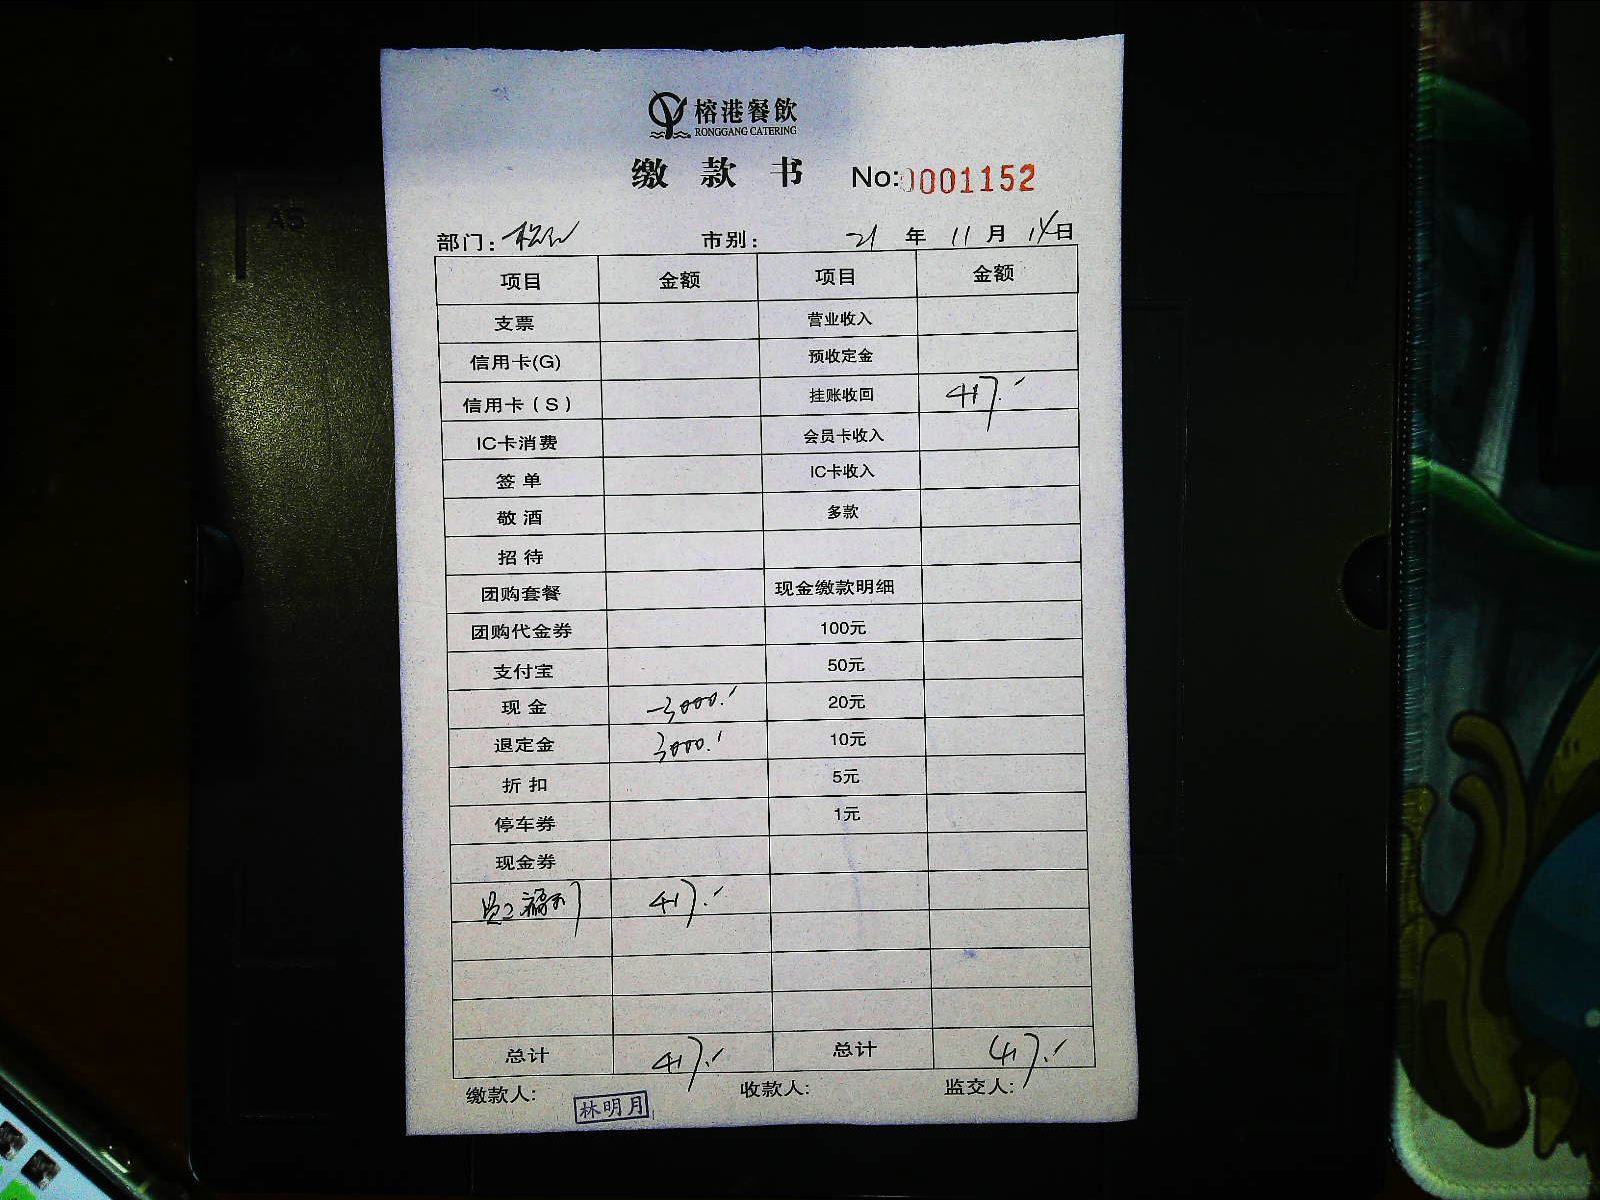 榕港餐飲
RONGGANG CATERING
缴款书 No:0001152
部门： 市别： 21 年 11 月 14 日
项目 金额 项目 金额
支票 营业收入
信用卡(G) 预收定金
信用卡（S） 挂账收回 417.-
IC卡消费 会员卡收入
签单 IC卡收入
敬酒 多款
招待
团购套餐 现金缴款明细
团购代金券 100元
支付宝 50元
现金 -3000.- 20元
退定金 3000.- 10元
折扣 5元
停车券 1元
现金券
员工福利 417.-
总计 417.- 总计 417.-
缴款人: 林明月 收款人: 监交人: